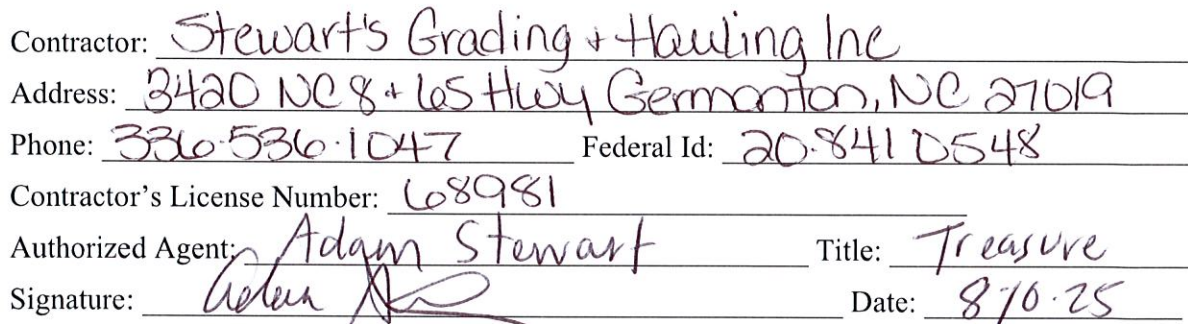 Contractor: Stewart's Grading + Hauling Inc
Address: 3420 NC 8 + 65 Hwy Germanton, NC 27019
Phone: 336.536.1047 Federal Id: 20.8410548
Contractor's License Number: 68981
Authorized Agent: Adam Stewart Title: Treasure
Signature: Adam Date: